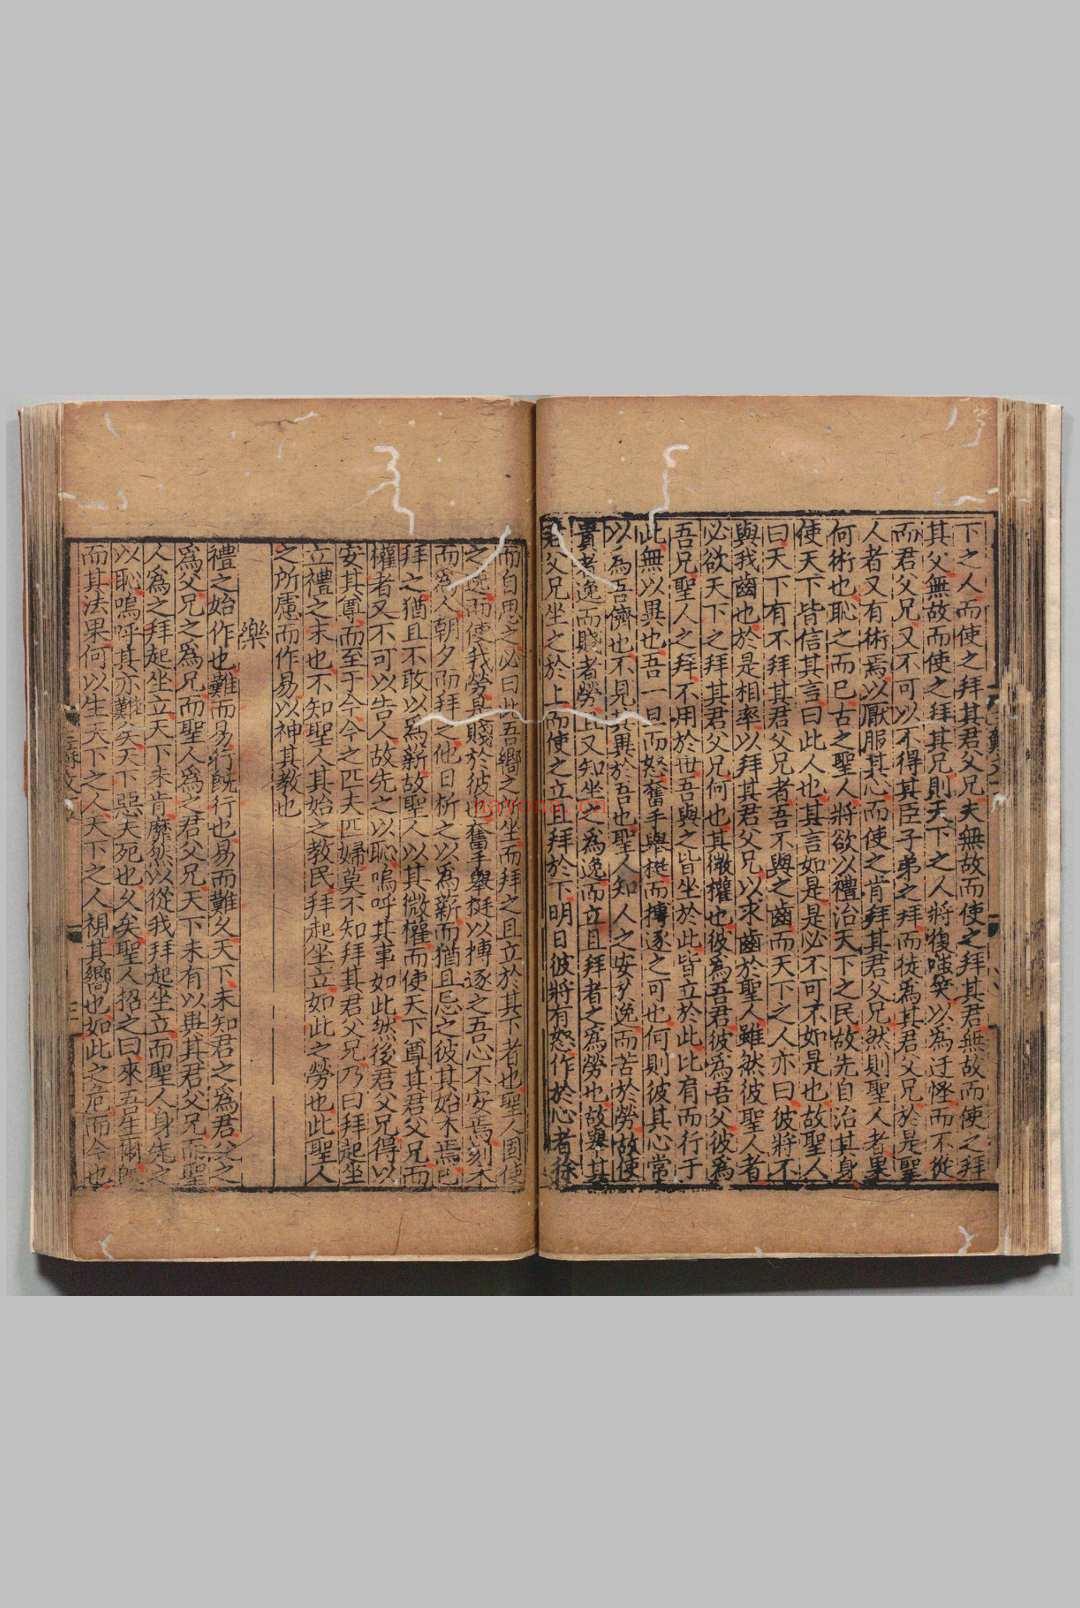 下之人而使之拜其君父兄夫無故而使之拜其君無故而使之拜
其父無故而使之拜其兄則天下之人將復嗤笑以為迂怪而不從
而君父兄又不可以不得其臣子弟之拜而徒為其君父兄於是聖
人者又有術焉以厭服其心而使之肯拜其君父兄然則聖人者果
何術也恥之而已古之聖人將欲以禮治天下之民故先自治其身
使天下皆信其言曰此人也其言如是是必不可不如是也故聖人
曰天下有不拜其君父兄者吾不與之齒而天下之人亦曰彼將不
與我齒也於是相率以拜其君父兄以求齒於聖人雖然彼聖人者
必欲天下之拜其君父兄何也其微權也彼為吾君彼為吾父彼為
吾兄聖人之拜不用於世吾與之皆坐於此皆立於此比肩而行于
此無以異也吾一旦而怒奮手舉梃而搏逐之可也何則彼其心常
以為吾儕也不見其異於吾也聖人知人之安於逸而苦於勞故使
貴者逸而賤者勞且又知坐之為逸而立且拜者之為勞也故舉其
君父兄坐之於上而使之立且拜於下明日彼將有怒作於心者徐
而自思之必曰此吾嚮之所坐而拜之且立於其下者也聖人固使
之逸而使我勞是賤於彼也奮手舉梃以搏逐之吾心不安焉刻木
而為人朝夕而拜之他日析之以為薪而猶且忌之彼其始木焉已
拜之猶且不敢以為薪故聖人以其微權而使天下尊其君父兄而
權者又不可以告人故先之以恥嗚呼其事如此然後君父兄得以
安其尊而至于今今之匹夫匹婦莫不知拜其君父兄乃曰拜起坐
立禮之末也不知聖人其始之教民拜起坐立如此之勞也此聖人
之所慮而作易以神其教也
樂
禮之始作也難而易行既行也易而難久天下未知君之為君父之
為父兄之為兄而聖人為之君父兄天下未有以異其君父兄而聖
人為之拜起坐立天下未肯靡然以從我拜起坐立而聖人身先之
以恥嗚呼其亦難矣天下惡夫死也久矣聖人招之曰來吾生爾既
而其法果何以生天下之人天下之人視其嚮也如此之危而今也